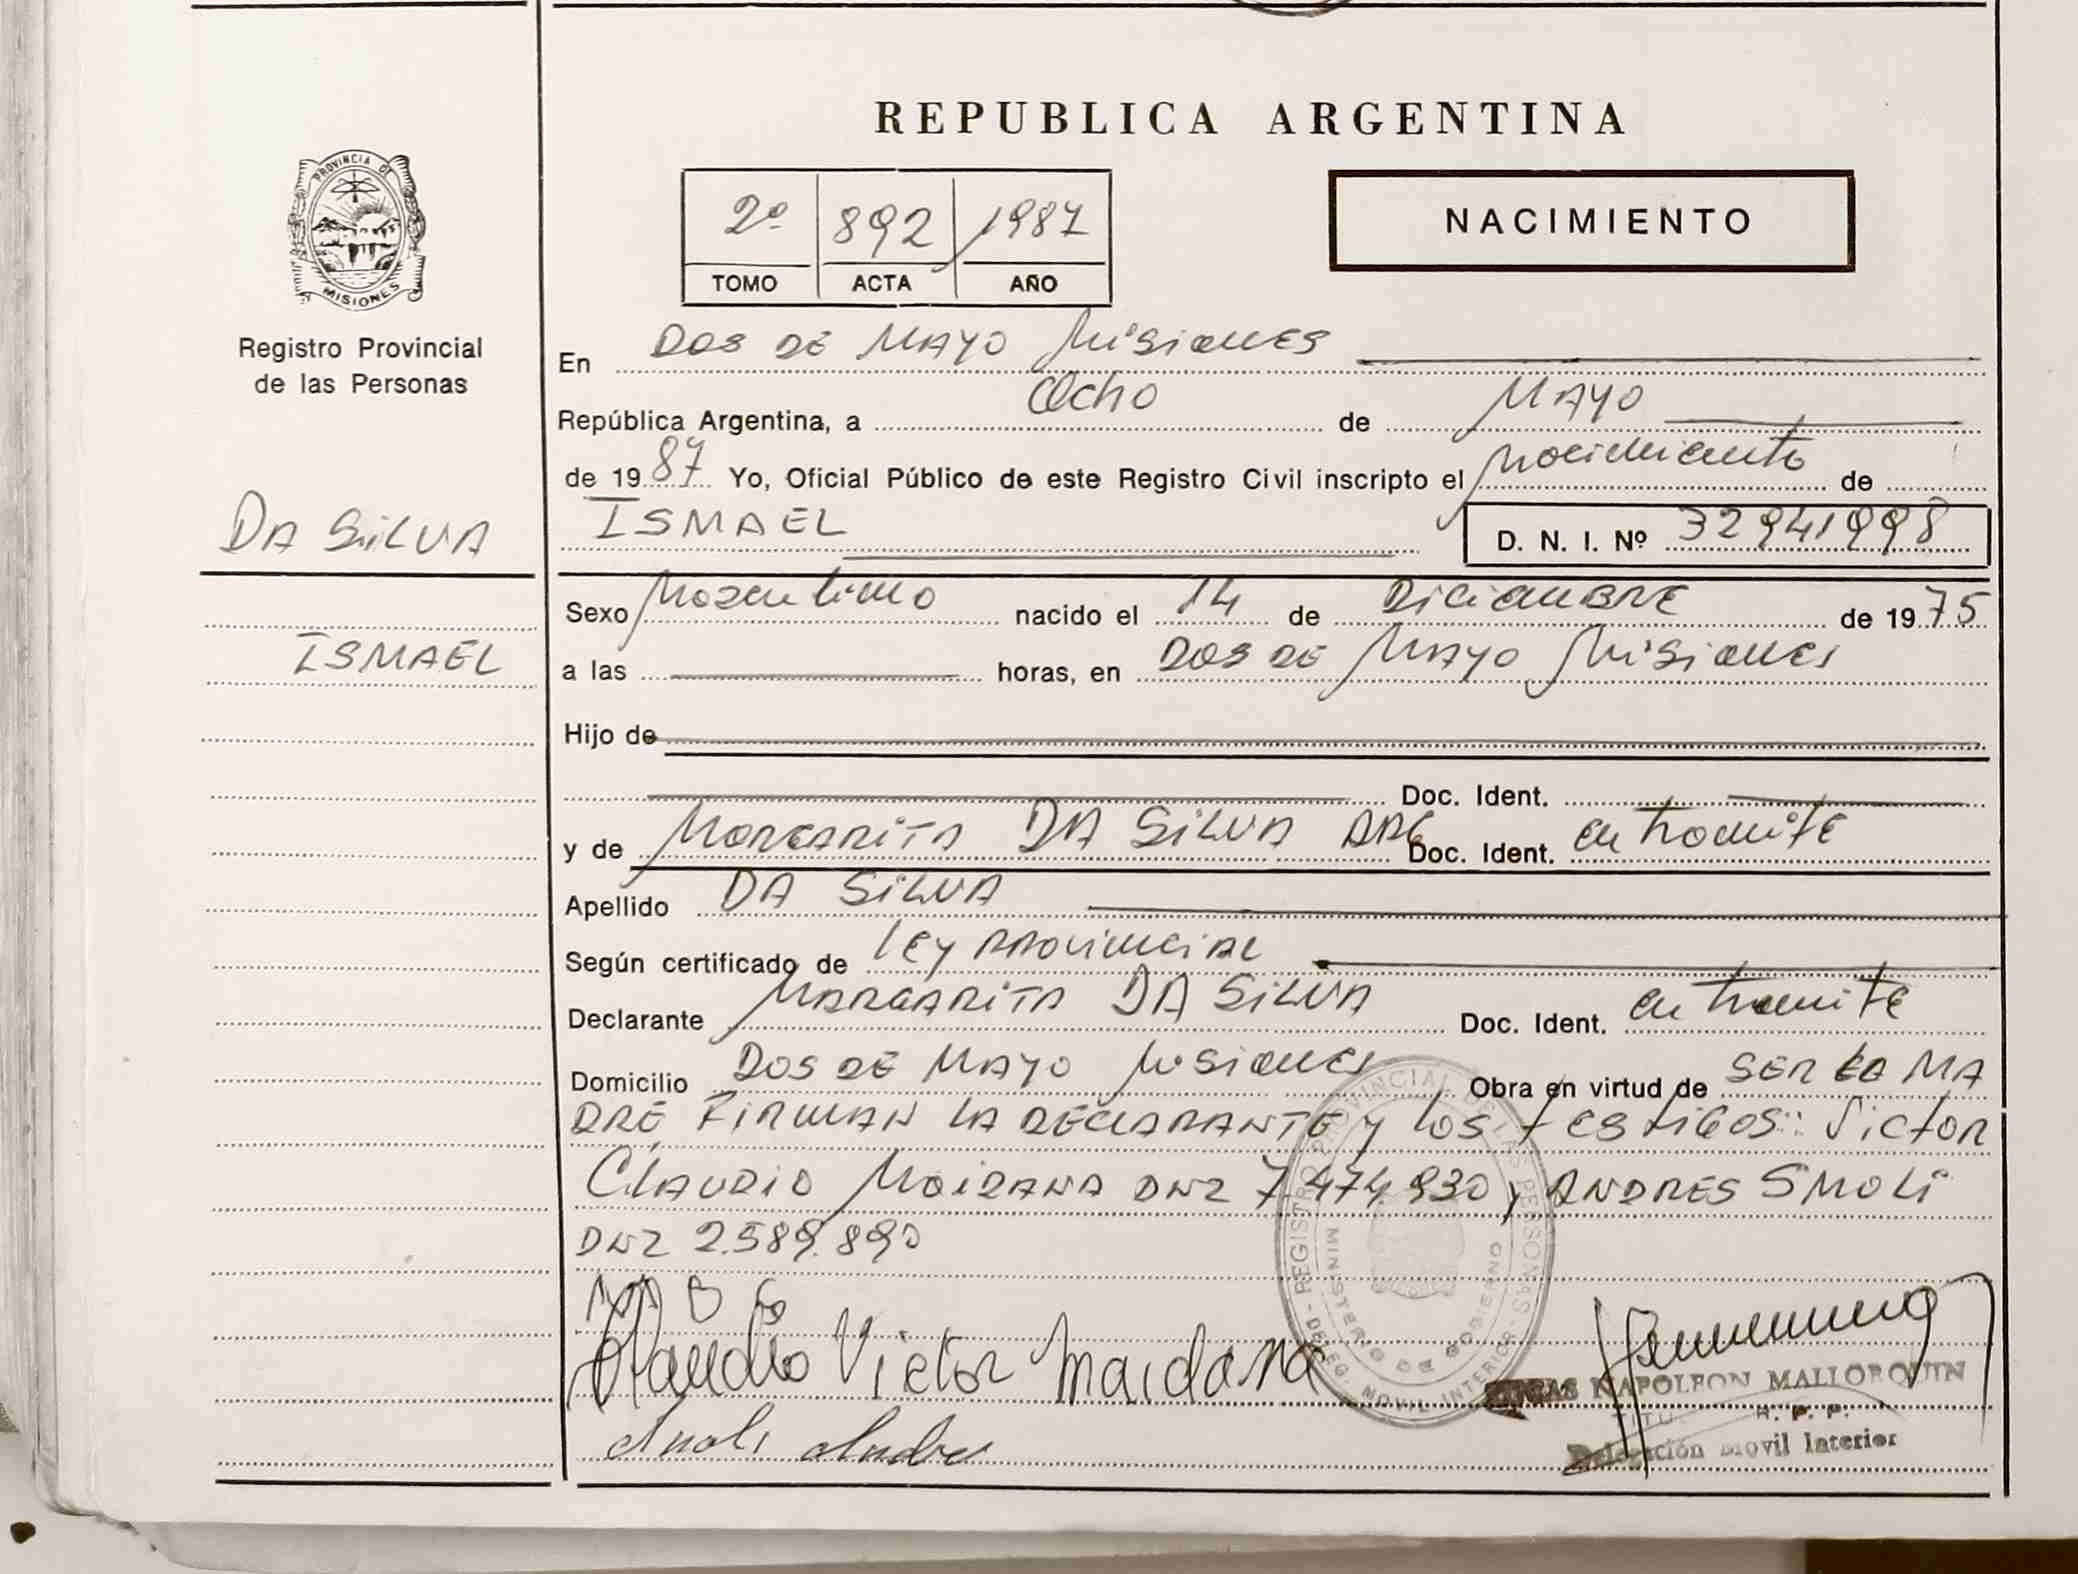 REPUBLICA ARGENTINA
PROVINCIA DE
MISIONES
Registro Provincial
de las Personas
2º 892 1987
TOMO ACTA AÑO
NACIMIENTO
En DOS DE MAYO MISIONES
República Argentina, a Ocho de MAYO
de 1987 Yo, Oficial Público de este Registro Civil inscripto el nacimiento de
DA SILVA
ISMAEL D. N. I. Nº 32941998
Sexo Masculino nacido el 14 de DICIEMBRE de 1975
ISMAEL
a las horas, en DOS DE MAYO MISIONES
Hijo de
Doc. Ident.
y de MARGARITA DA SILVA ARG Doc. Ident. en tramite
Apellido DA SILVA
Según certificado de LEY PROVINCIAL
Declarante MARGARITA DA SILVA Doc. Ident. en tramite
Domicilio DOS DE MAYO MISIONES Obra en virtud de SER LA MA
DRE, FIRMAN LA DECLARANTE y LOS TESTIGOS: VICTOR
CLAUDIO MAIDANA DNI 7.474.930 y ANDRES SMOLI
DNI 2.589.890
Claudio Victor Maidana
Smoli Andres
REGISTRO PROVINCIAL DE LAS PERSONAS
MINISTERIO DE GOBIERNO
DELEG. MOVIL INTERIOR
NAPOLEON MALLORQUIN
R. P. P.
Delegación Movil Interior